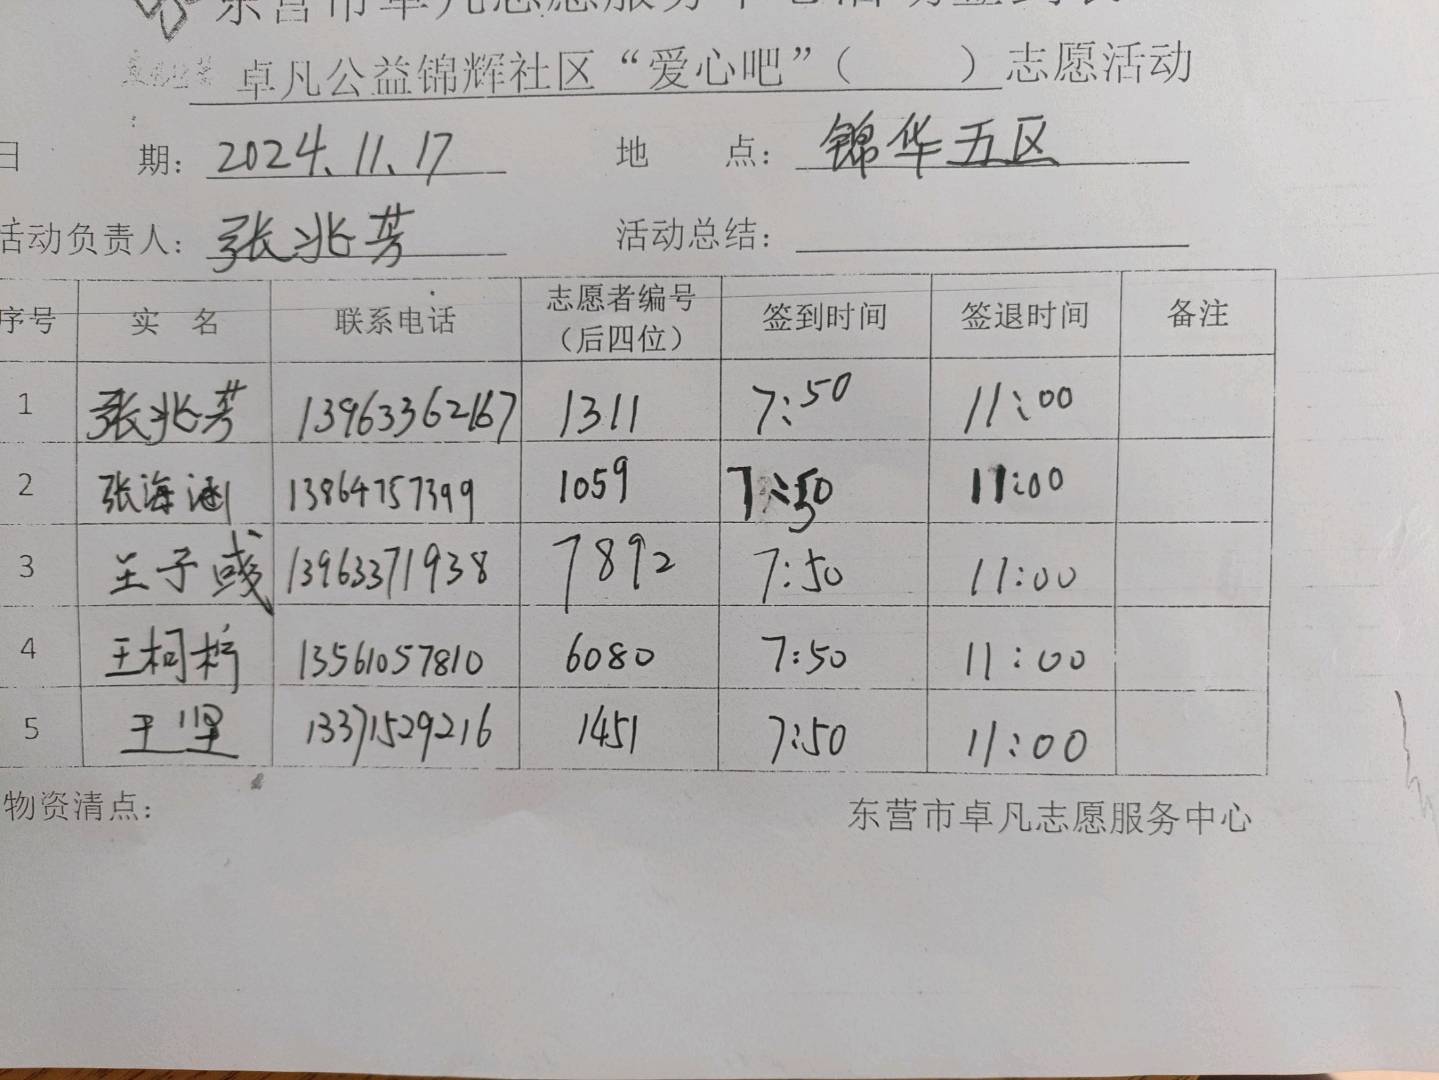 东营市卓凡志愿服务中心活动签到表
卓凡公益 卓凡公益锦辉社区“爱心吧”（ ）志愿活动
日 期：2024.11.17 地 点：锦华五区
活动负责人：张兆芳 活动总结：
序号 实 名 联系电话 志愿者编号（后四位） 签到时间 签退时间 备注
1 张兆芳 13963362167 1311 7:50 11:00
2 张海涵 13864757399 1059 7:50 11:00
3 王子彧 13963371938 7892 7:50 11:00
4 王柯柠 13561057810 6080 7:50 11:00
5 王坚 13371529216 1451 7:50 11:00
物资清点： 东营市卓凡志愿服务中心